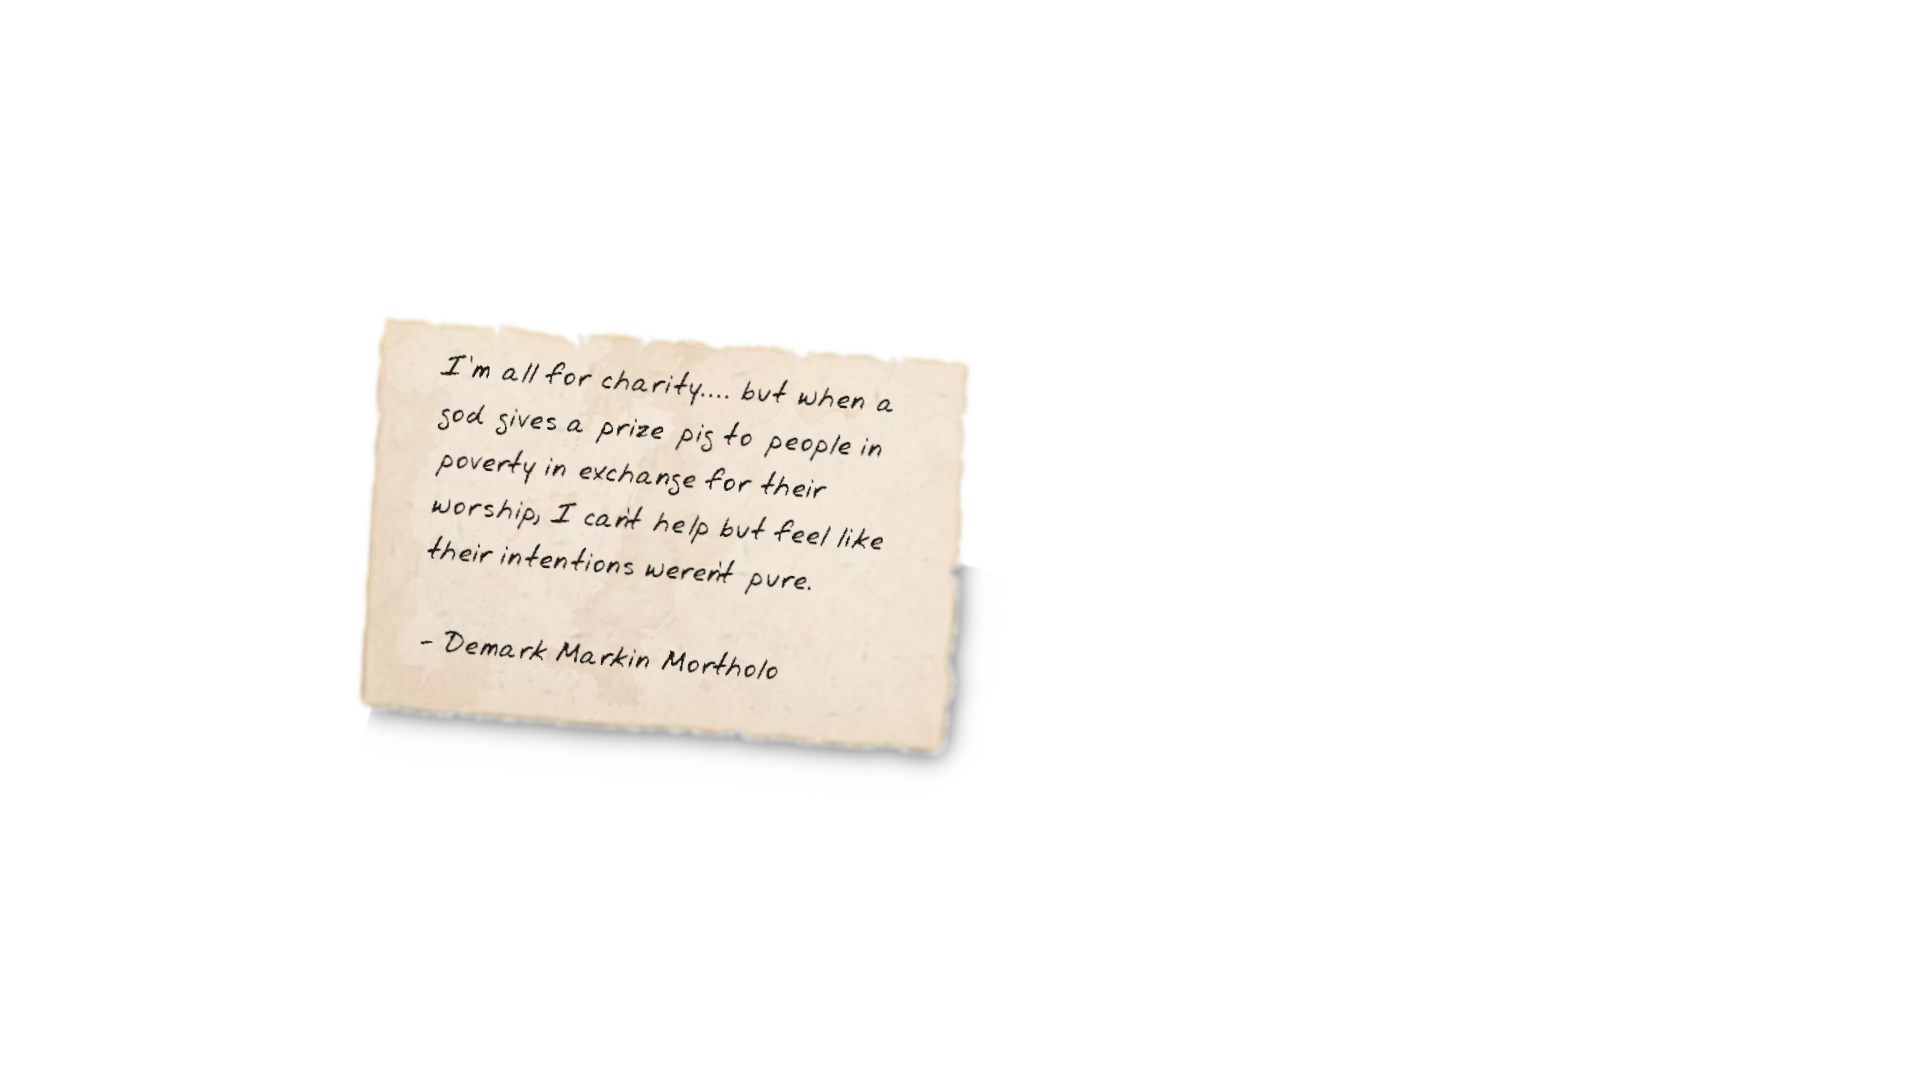 I'm all for charity.... but when a
god gives a prize pig to people in
poverty in exchange for their
worship, I can't help but feel like
their intentions weren't pure.
- Demark Markin Mortholo